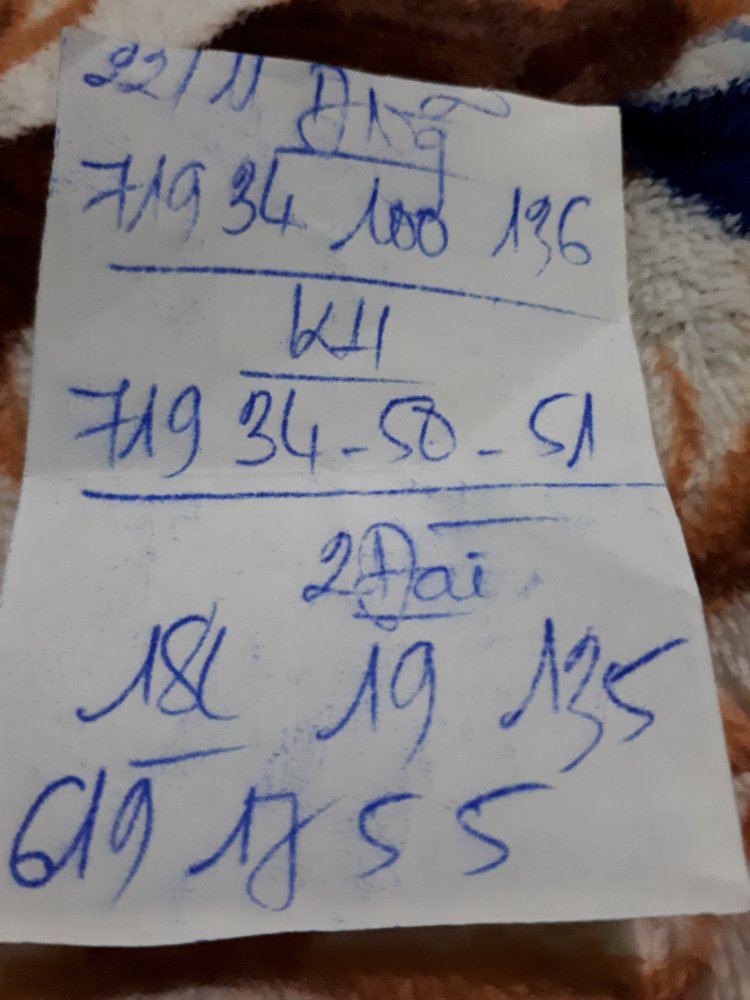 22/11
719 34 100 136
KH
719 34 - 50 - 51
2 Đai
19 135
619 17 5 5